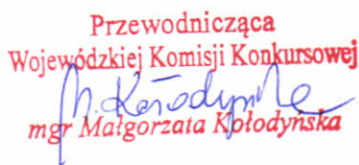 Przewodnicząca
Wojewódzkiej Komisji Konkursowej
M. Kołodyńska
mgr Małgorzata Kołodyńska